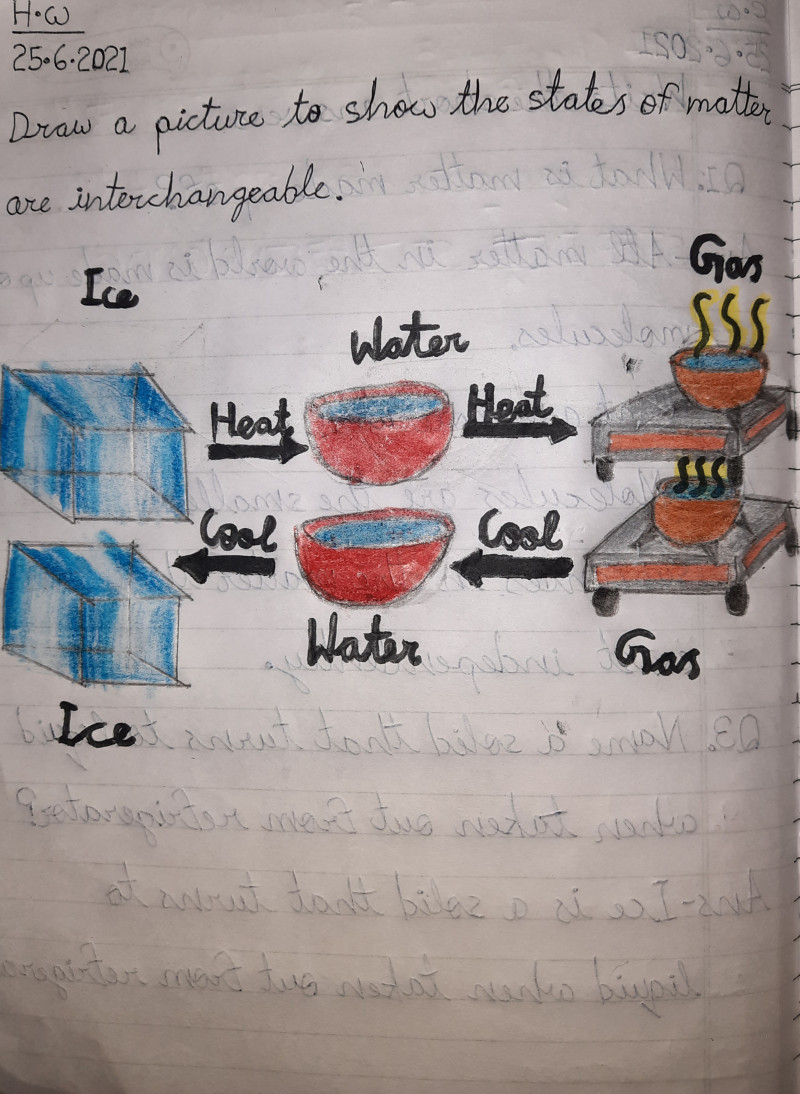 H.W
25.6.2021
Draw a picture to show the states of matter
are interchangeable.
Ice
Water
Gas
Heat
Heat
Cool
Cool
Ice
Water
Gas